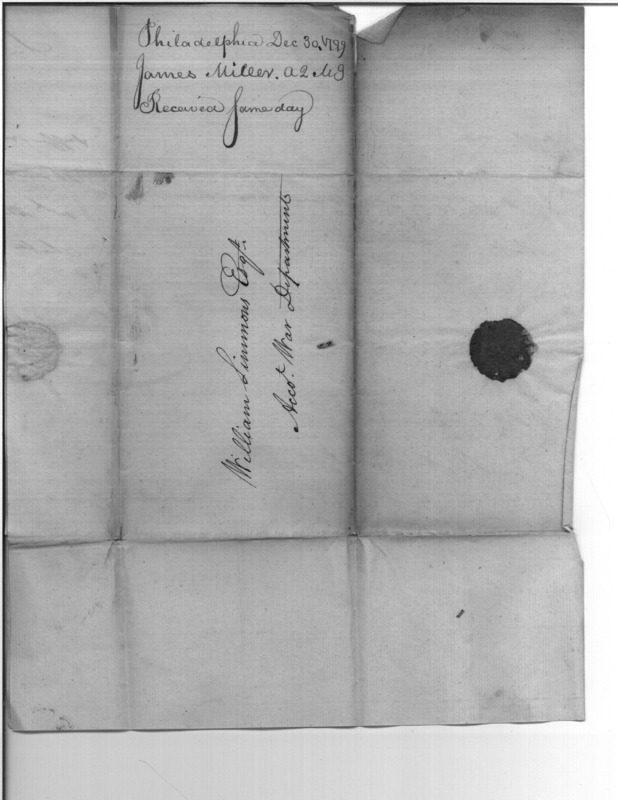 Philadelphia Dec 30. 1799
James Miller. A Q M G
Received same day
William Simmons Esqr.
Acco.t War Department